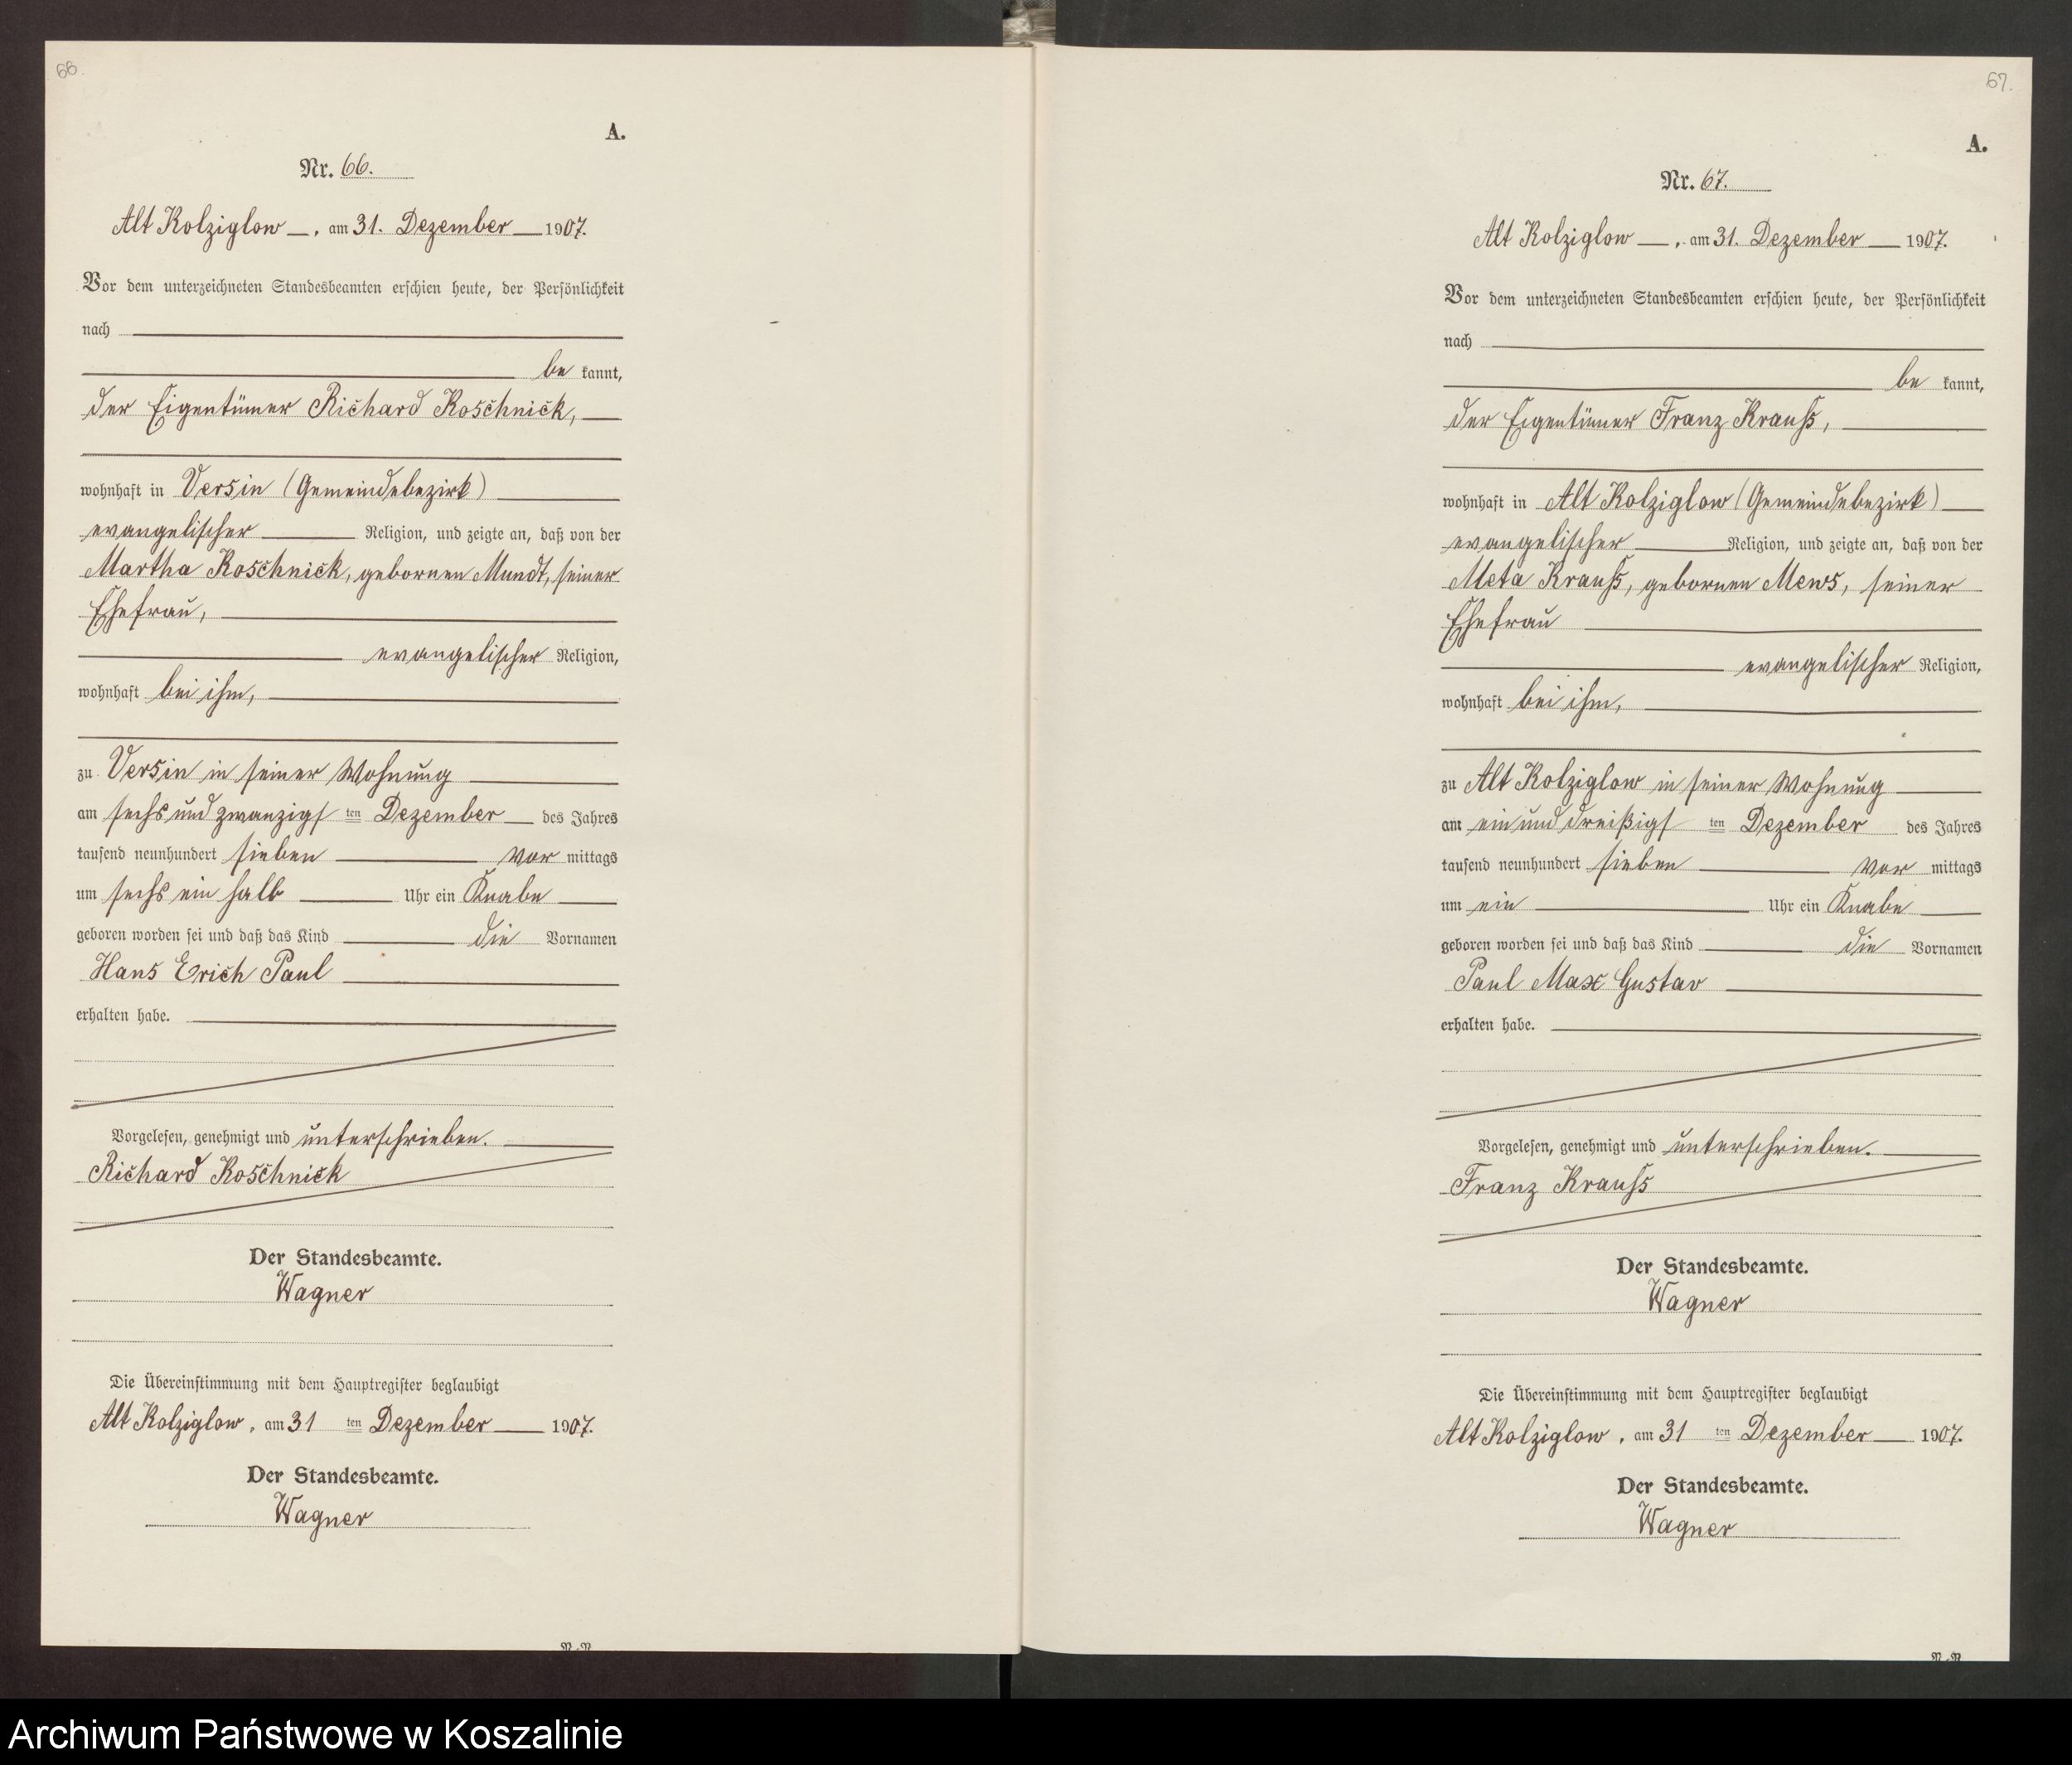 66.
A.
Nr. 66.
Alt Kolziglow, am 31. Dezember 1907.
Vor dem unterzeichneten Standesbeamten erschien heute, der Persönlichkeit
nach
be kannt,
der Eigentümer Richard Koschnick,
wohnhaft in Versin (Gemeindebezirk)
evangelischer Religion, und zeigte an, daß von der
Martha Koschnick, gebornen Mundt, seiner
Ehefrau,
evangelischer Religion,
wohnhaft bei ihm,
zu Versin in seiner Wohnung
am sechs und zwanzigs ten Dezember des Jahres
tausend neunhundert sieben vor mittags
um sechs ein halb Uhr ein Knabe
geboren worden sei und daß das Kind die Vornamen
Hans Erich Paul
erhalten habe.
Vorgelesen, genehmigt und unterschrieben.
Richard Koschnick
Der Standesbeamte.
Wagner
Die Übereinstimmung mit dem Hauptregister beglaubigt
Alt Kolziglow, am 31 ten Dezember 1907.
Der Standesbeamte.
Wagner
67.
A.
Nr. 67.
Alt Kolziglow, am 31. Dezember 1907.
Vor dem unterzeichneten Standesbeamten erschien heute, der Persönlichkeit
nach
be kannt,
der Eigentümer Franz Krauss,
wohnhaft in Alt Kolziglow (Gemeindebezirk)
evangelischer Religion, und zeigte an, daß von der
Meta Krauss, gebornen Mews, seiner
Ehefrau
evangelischer Religion,
wohnhaft bei ihm,
zu Alt Kolziglow in seiner Wohnung
am ein und dreißigs ten Dezember des Jahres
tausend neunhundert sieben vor mittags
um ein Uhr ein Knabe
geboren worden sei und daß das Kind die Vornamen
Paul Max Gustav
erhalten habe.
Vorgelesen, genehmigt und unterschrieben.
Franz Krauss
Der Standesbeamte.
Wagner
Die Übereinstimmung mit dem Hauptregister beglaubigt
Alt Kolziglow, am 31 ten Dezember 1907.
Der Standesbeamte.
Wagner
Archiwum Państwowe w Koszalinie